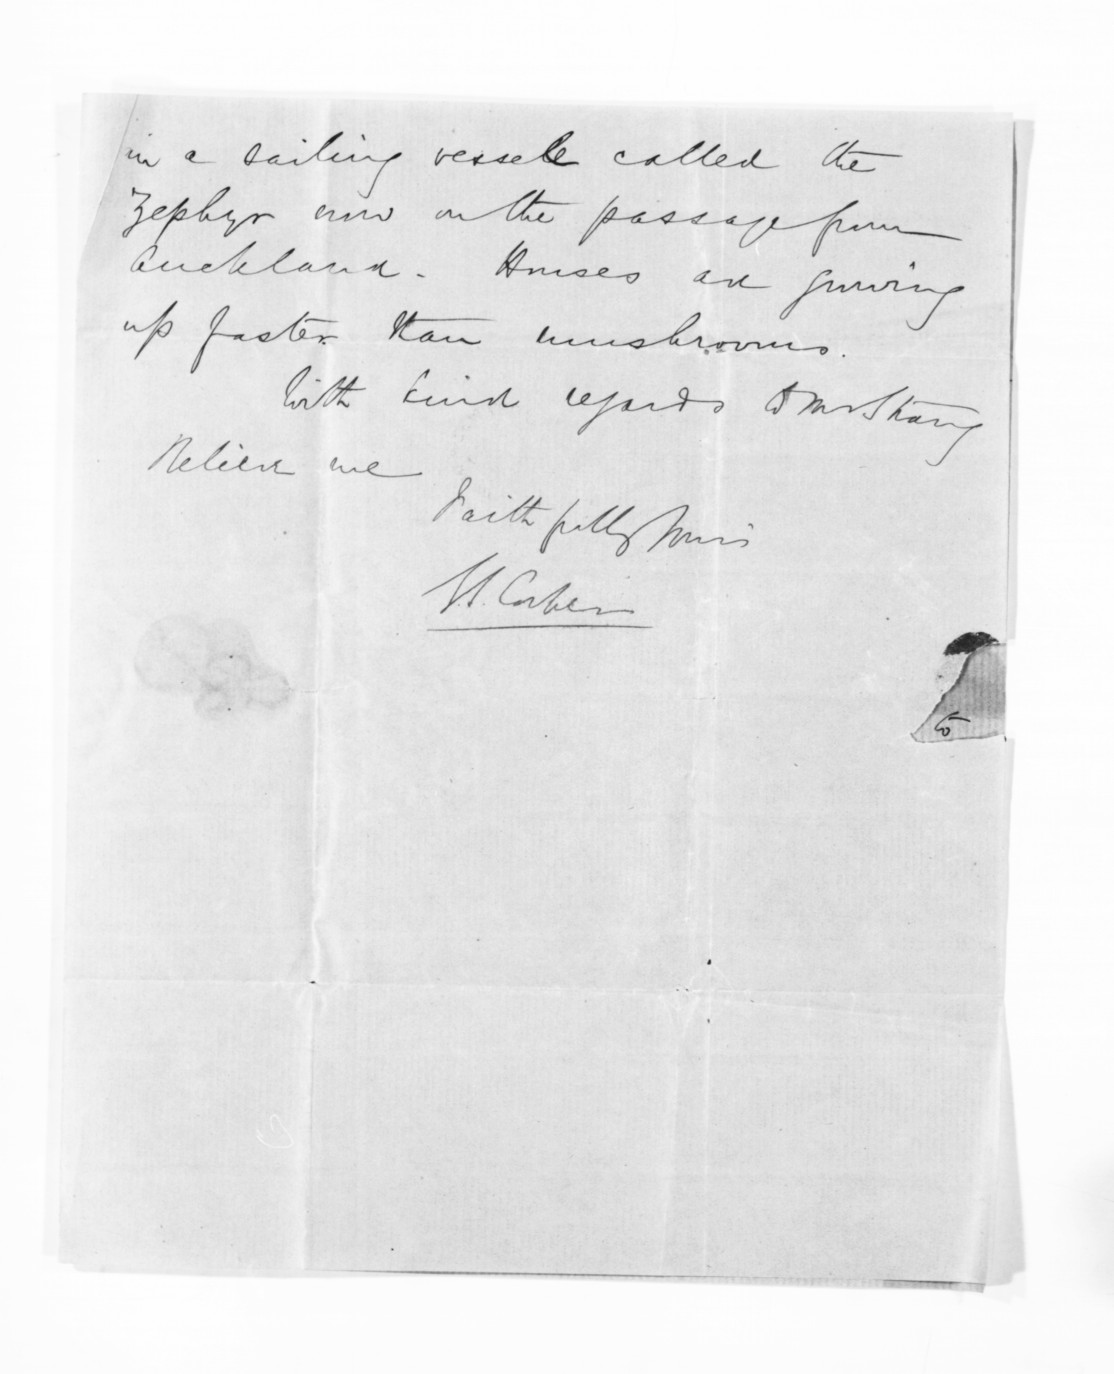 in a sailing vessel called the
Zephyr now on the passage from
Auckland. Houses are growing
up faster than mushrooms.
With kind regards to Mr Strang
Believe me
Faithfully Yours
to